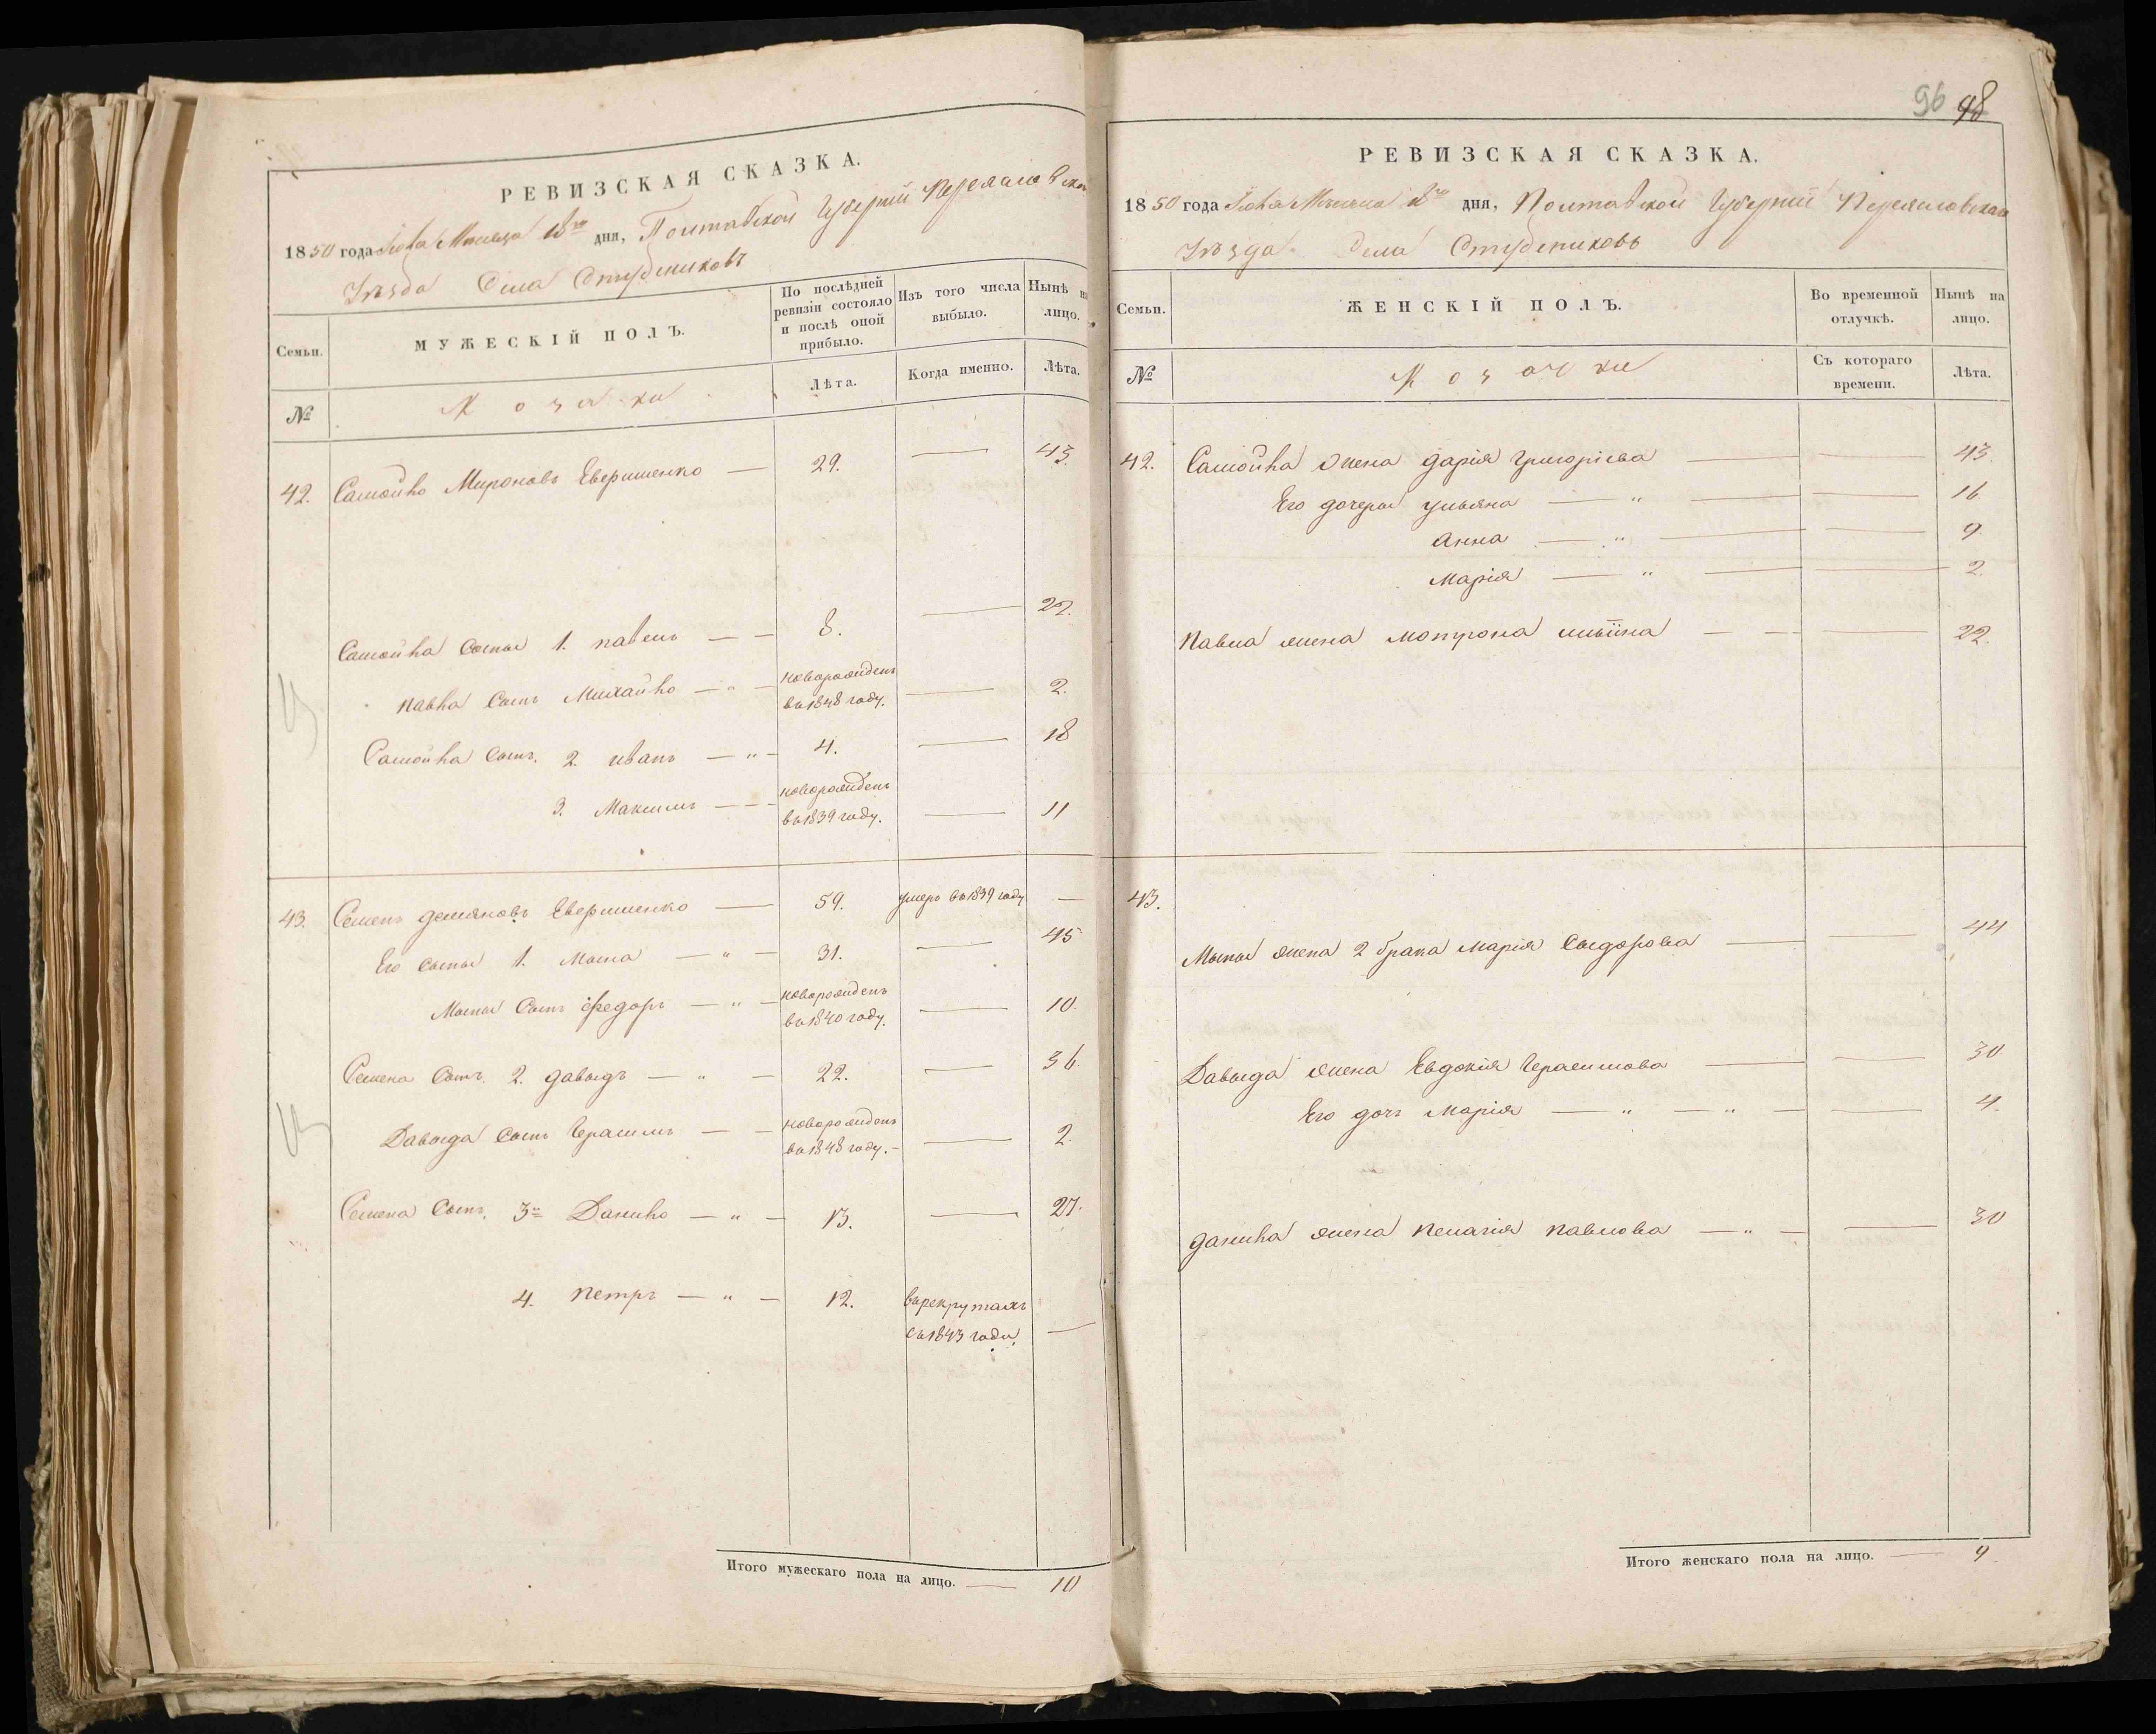 РЕВИЗСКАЯ СКАЗКА.
1850 года Іюля Мѣсяца дня, Полтавской Губерніи Переяславскаго
Уѣзда Села Студениковъ
Семьи.
МУЖЕСКІЙ ПОЛЪ.
По послѣдней ревизіи состояло и послѣ оной прибыло.
Изъ того числа выбыло.
Нынѣ на лицо.
№
Козаки
Лѣта.
Когда именно.
Лѣта.
42. Самойло Мироновъ Еверишенко — 29. — 43.
Самойла сыны 1. павелъ — — 8. — 22.
павла сынъ Михайло — „ — новорожденъ в 1848 году. — 2.
Самойла сынъ. 2. иванъ — „ — 4. — 18
3. Максимъ — — новорожденъ в 1839 году. — 11
43. Семенъ демяновъ Еверишенко — 59. умеръ в 1839 году —
Его сыны 1. Мына — „ — 31. — 45
Мыны сынъ федоръ — „ — новорожденъ в 1840 году. — 10.
Семена сынъ. 2. давыдъ — „ — 22. — 36.
Давыда сынъ Герасимъ — — новорожденъ в 1848 году. — 2.
Семена сынъ. 3й Данило — „ — 13. — 27.
4. петръ — „ — 12. в рекрутахъ с 1843 года. —
Итого мужескаго пола на лицо. — 10
96 98
РЕВИЗСКАЯ СКАЗКА.
1850 года Іюля Мѣсяца дня, Полтавской Губерніи Переяславскаго
Уѣзда Села Студениковъ
Семьи.
ЖЕНСКІЙ ПОЛЪ.
Во временной отлучкѣ.
Нынѣ на лицо.
№
Козачки
Съ котораго времени.
Лѣта.
42. Самойла жена дарія григоріева — — 43.
Его дочеры ульяна — „ — — 16
анна — „ — — 9.
марія — „ — — 2.
павла жена мотрона ильіина — — — 22.
43.
Мыны жена 2 брака марія сыдорова — — 44
Давыда жена Евдокія Герасимова — — 30.
Его дочь марія — „ — „ — — 4.
данила жена пелагія павлова — „ — — 30
Итого женскаго пола на лицо. — 9.